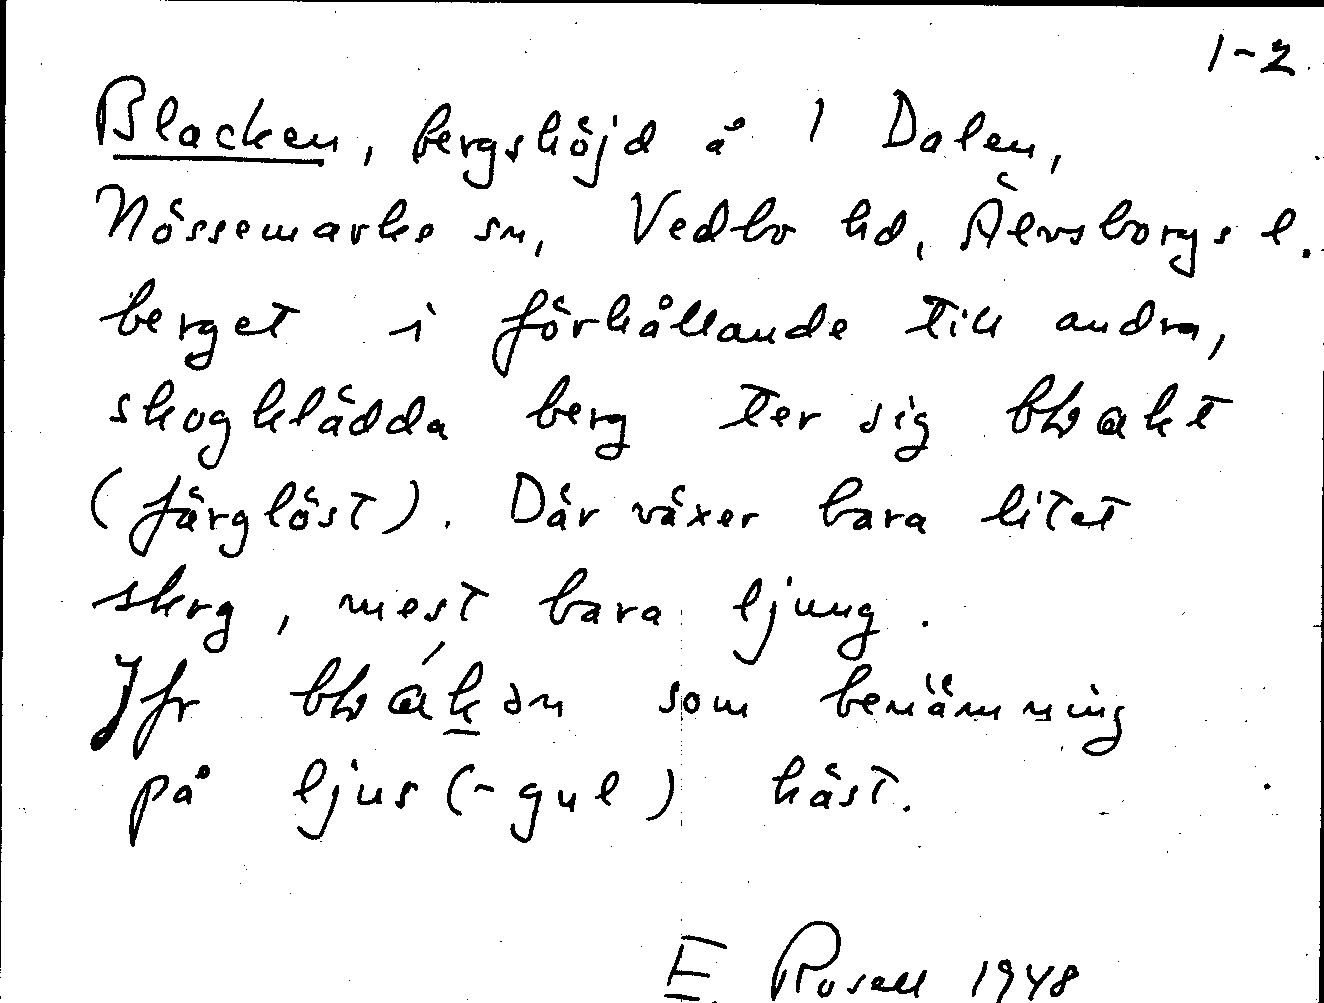 1-2
Blacken, bergshöjd å 1 Dalen,
Nössemarks sn, Vedbo hd, Älvsborgs l.
berget i förhållande till andra,
skogklädda berg ter sig blakt
(färglöst). Där växer bara litet
skog, mest bara ljung.
Jfr som benämning
på ljus(-gul) häst.
E. Rosell 1948